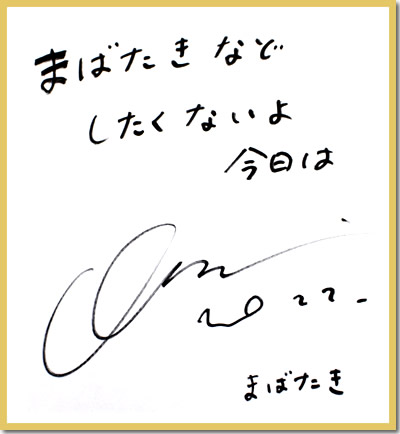 まばたきなど
したくないよ
今日は
まばたき